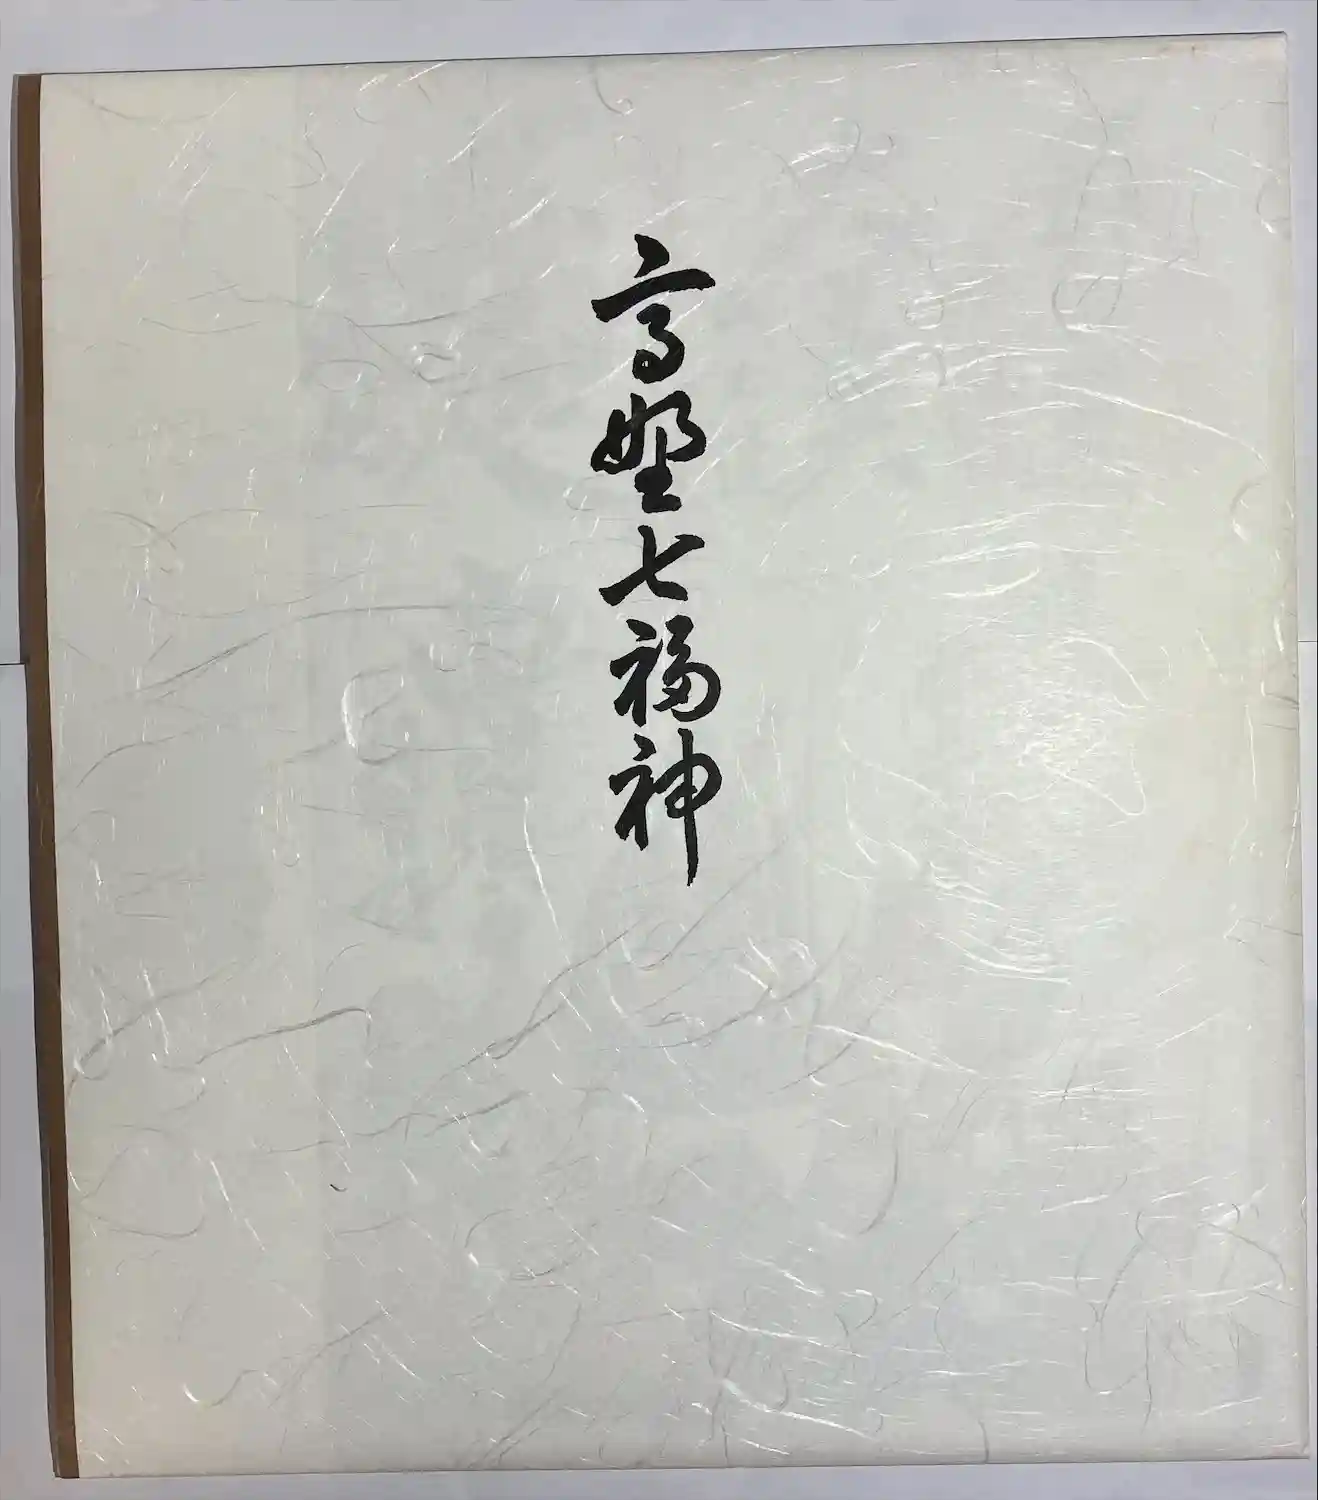 高野七福神